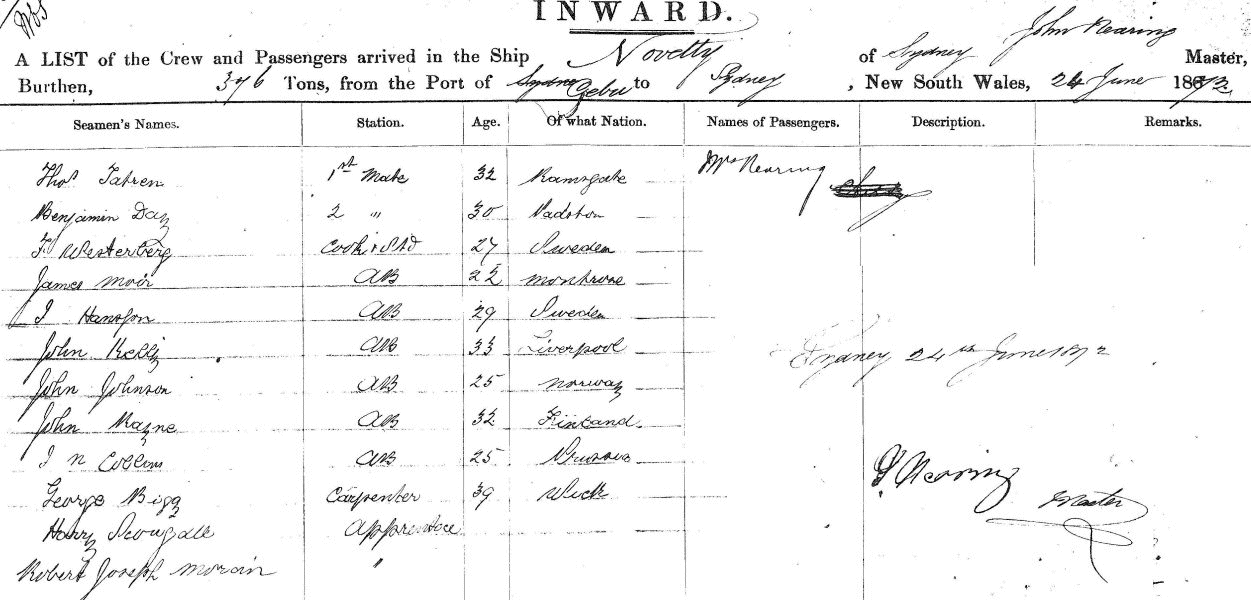 INWARD.
John Nearing
A LIST of the Crew and Passengers arrived in the Ship Novelty of Sydney Master,
Burthen, 376 Tons, from the Port of Zebu to Sydney, New South Wales, 24 June 1872
Seamen's Names. Station. Age. Of what Nation. Names of Passengers. Description. Remarks.
Thos 1st Mate 32 Ramsgate Mrs Nearing
Benjamin Day 2 " 30 Padstow
F Westerberg Cook & Std 27 Sweden
James Moir AB 22 Montrose
I Hansson AB 29 Sweden
John Kelly AB 33 Liverpool
Sydney 24th June 1872
John Johnson AB 25 Norway
John AB 32 Finland
I N Collins AB 25 Prussia
J. Nearing
George Bigg Carpenter 39 Wick
Master
Harry Scougall Apprentice
Robert Joseph "